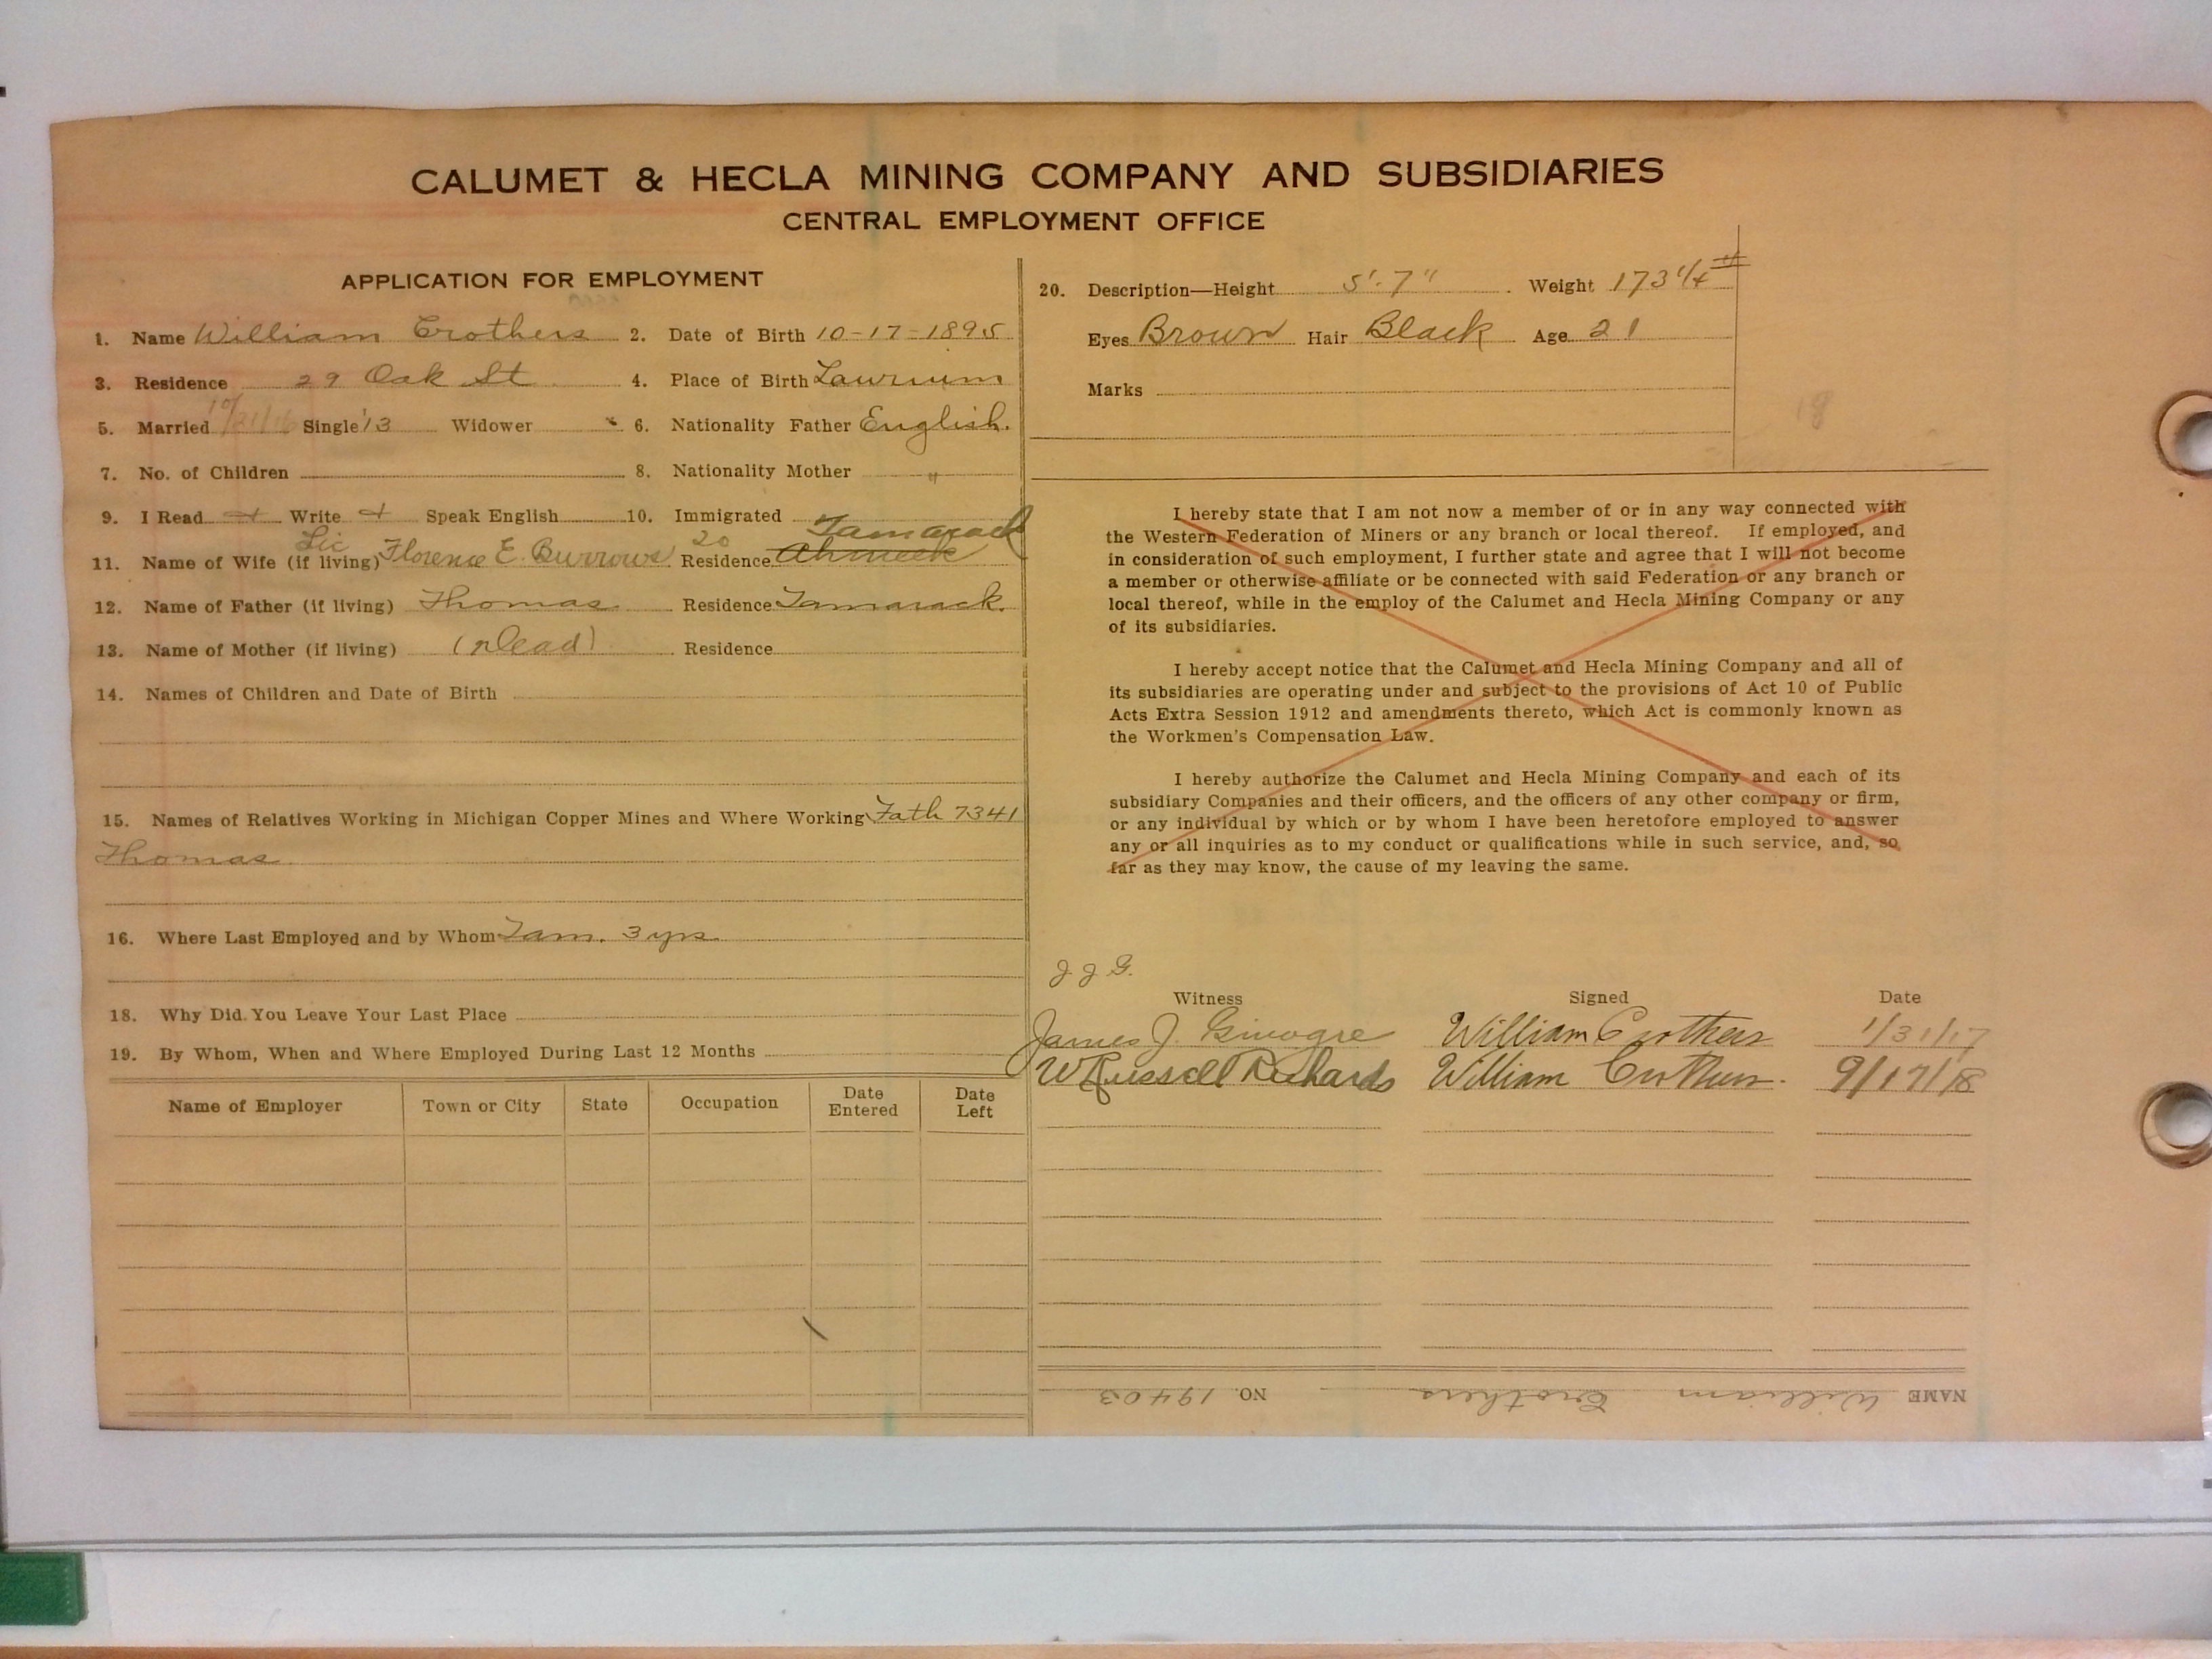 CALUMET & HECLA MINING COMPANY AND SUBSIDIARIES
CENTRAL EMPLOYMENT OFFICE
APPLICATION FOR EMPLOYMENT
1. Name William Crothers 2. Date of Birth 10-17-1895
3. Residence 29 Oak St 4. Place of Birth Lawrium
5. Married Single '13 Widower 6. Nationality Father English.
7. No. of Children 8. Nationality Mother "
9. I Read Write Speak English 10. Immigrated
Lic 20 Tamarack
11. Name of Wife (if living) Florence E. Burrows Residence Ahmeek
12. Name of Father (if living) Thomas Residence Tamarack.
13. Name of Mother (if living) (Dead) Residence
14. Names of Children and Date of Birth
15. Names of Relatives Working in Michigan Copper Mines and Where Working Fath 7341
Thomas
16. Where Last Employed and by Whom Tam. 3 yrs
18. Why Did You Leave Your Last Place
19. By Whom, When and Where Employed During Last 12 Months
Name of Employer Town or City State Occupation Date Entered Date Left
20. Description—Height 5'-7" Weight 173 1/4 #
Eyes Brown Hair Black Age 21
Marks
18
I hereby state that I am not now a member of or in any way connected with
the Western Federation of Miners or any branch or local thereof. If employed, and
in consideration of such employment, I further state and agree that I will not become
a member or otherwise affiliate or be connected with said Federation or any branch or
local thereof, while in the employ of the Calumet and Hecla Mining Company or any
of its subsidiaries.
I hereby accept notice that the Calumet and Hecla Mining Company and all of
its subsidiaries are operating under and subject to the provisions of Act 10 of Public
Acts Extra Session 1912 and amendments thereto, which Act is commonly known as
the Workmen's Compensation Law.
I hereby authorize the Calumet and Hecla Mining Company and each of its
subsidiary Companies and their officers, and the officers of any other company or firm,
or any individual by which or by whom I have been heretofore employed to answer
any or all inquiries as to my conduct or qualifications while in such service, and, so
far as they may know, the cause of my leaving the same.
J J G.
Witness Signed Date
James J. William Crothers 1/31/17
W Russell Richards William Crothers. 9/17/18
NAME William Crothers NO. 19403